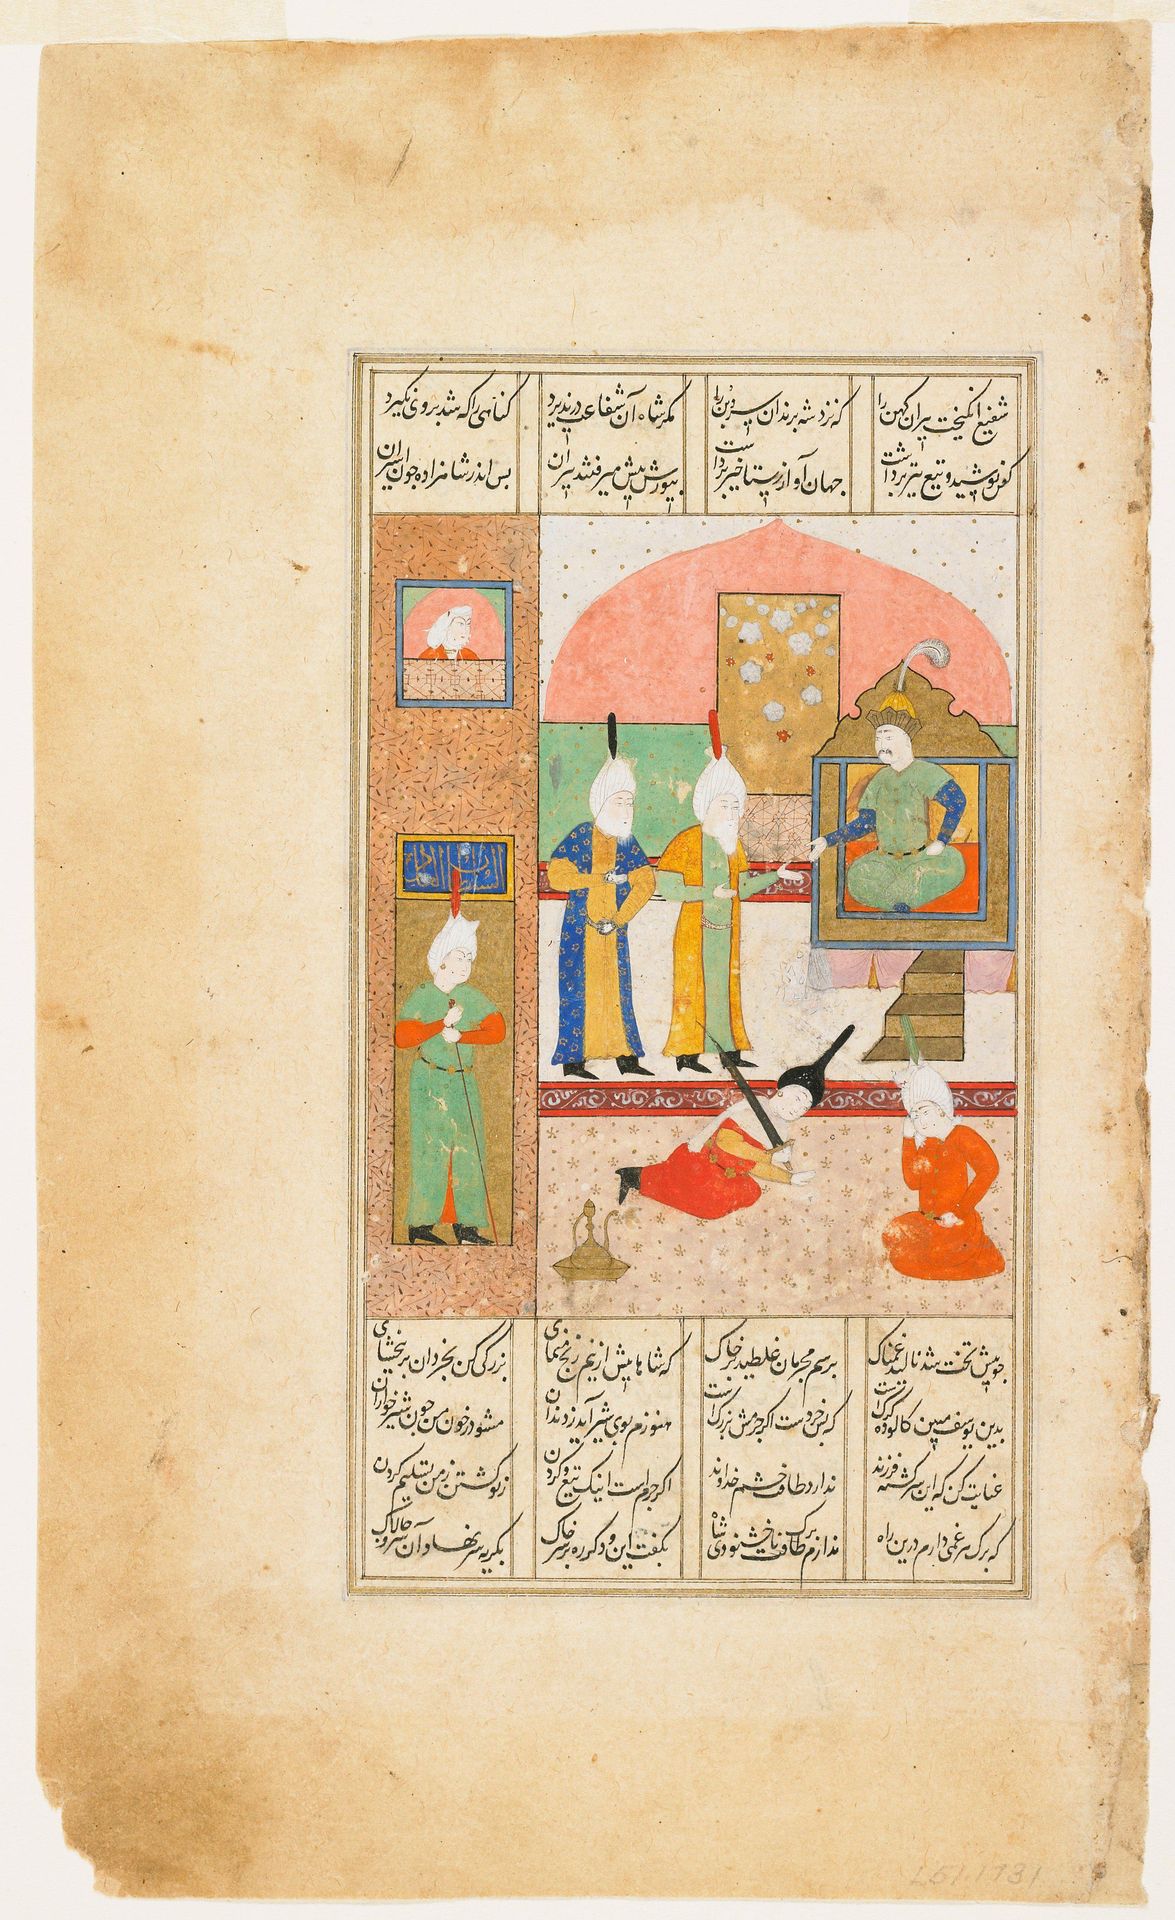 شفیع انگیخت پیران کهن را که نزد شه برند آن سرو بن را مگر شاه آن شفاعت درپذیرد گناهی را که شد بر وی نگیرد
کفن پوشید و تیغ تیز برداشت جهان آواز رستاخیز برداشت بپوزش پیش میرفتند پیران پس اندر شاهزاده چون اسیران
السلطان العادل
چو پیش تخت شد نالید غمناک برسم مجرمان غلطید بر خاک که شاها بیش ازینم رنج منمای بزرگی کن بخردان بر ببخشای
بدین یوسف مبین کالوده گرگست که بس خردست اگر جرمش بزرگست هنوزم بوی شیر آید ز دندان مشو در خون من چون شیر خواران
عنایت کن که این سرگشته فرزند ندارد طاقت خشم خداوند اگر جرمست اینک تیغ و گردن ز تو کشتن ز من تسلیم کردن
که برگ هر غمی دارم درین راه ندارم برگ ناخشنودی شاه بگفت این و دگر ره بر سر خاک بگریه سر نهاد آن سرو چالاک